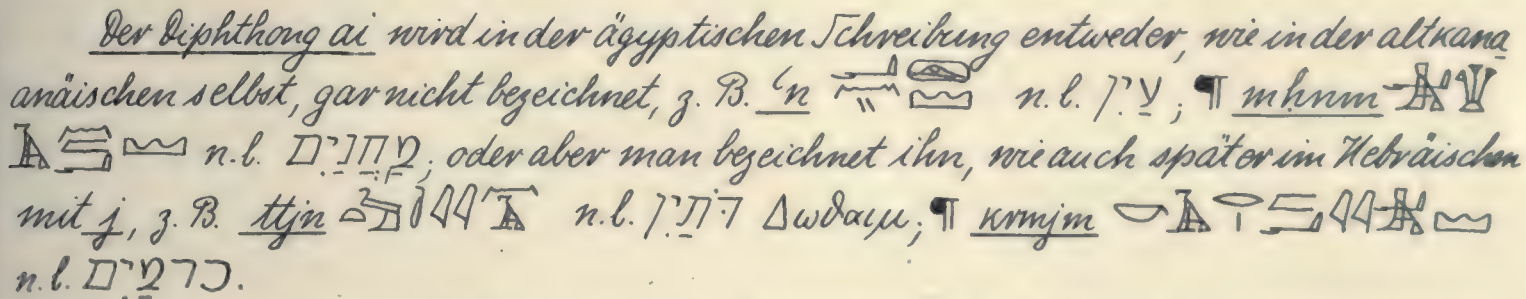 Der Diphthong ai wird in der ägyptischen Schreibung entweder, wie in der altkana
anäischen selbst, gar nicht bezeichnet, z. B. ꜥn n. l. עַיִן; ¶ mḥnm
n. l. מַחֲנַיִם; oder aber man bezeichnet ihn, wie auch später im Hebräischen
mit j, z. B. ttjn n. l. דֹּתַיִן Δωθαιμ; ¶ krmjm
n. l. כרמַיִם.